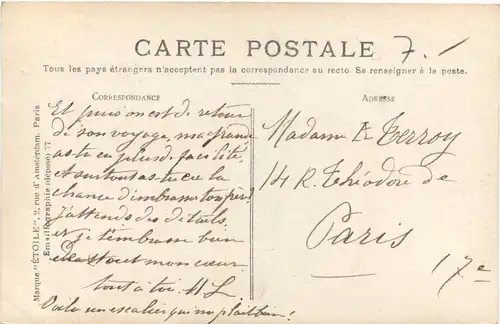 CARTE POSTALE
7. /
Tous les pays étrangers n'acceptent pas la correspondance au recto. Se renseigner à la poste.
CORRESPONDANCE
ADRESSE
Marque "ÉTOILE", 2, rue d'Amsterdam, Paris
Emaillographie (déposé) 77
Et puis on est de retour
de son voyage, ma grande
as-tu eu plus de facilité,
et surtout as-tu eu la
chance d'embrasser ton père
j'attends des détails
et je t'embrasse bien
de tout mon cœur
tout à toi. ML
Voilà un escalier qui me plait bien!
Madame Terroy
14 R. Théodore de
Paris
17e